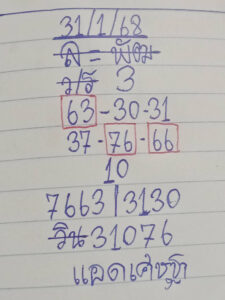 31/1/68
ส = พัฒม
ว/ร 3
63-30-31
37-76-66
10
7663|3130
วิน 31076
แอดเศรษฐา